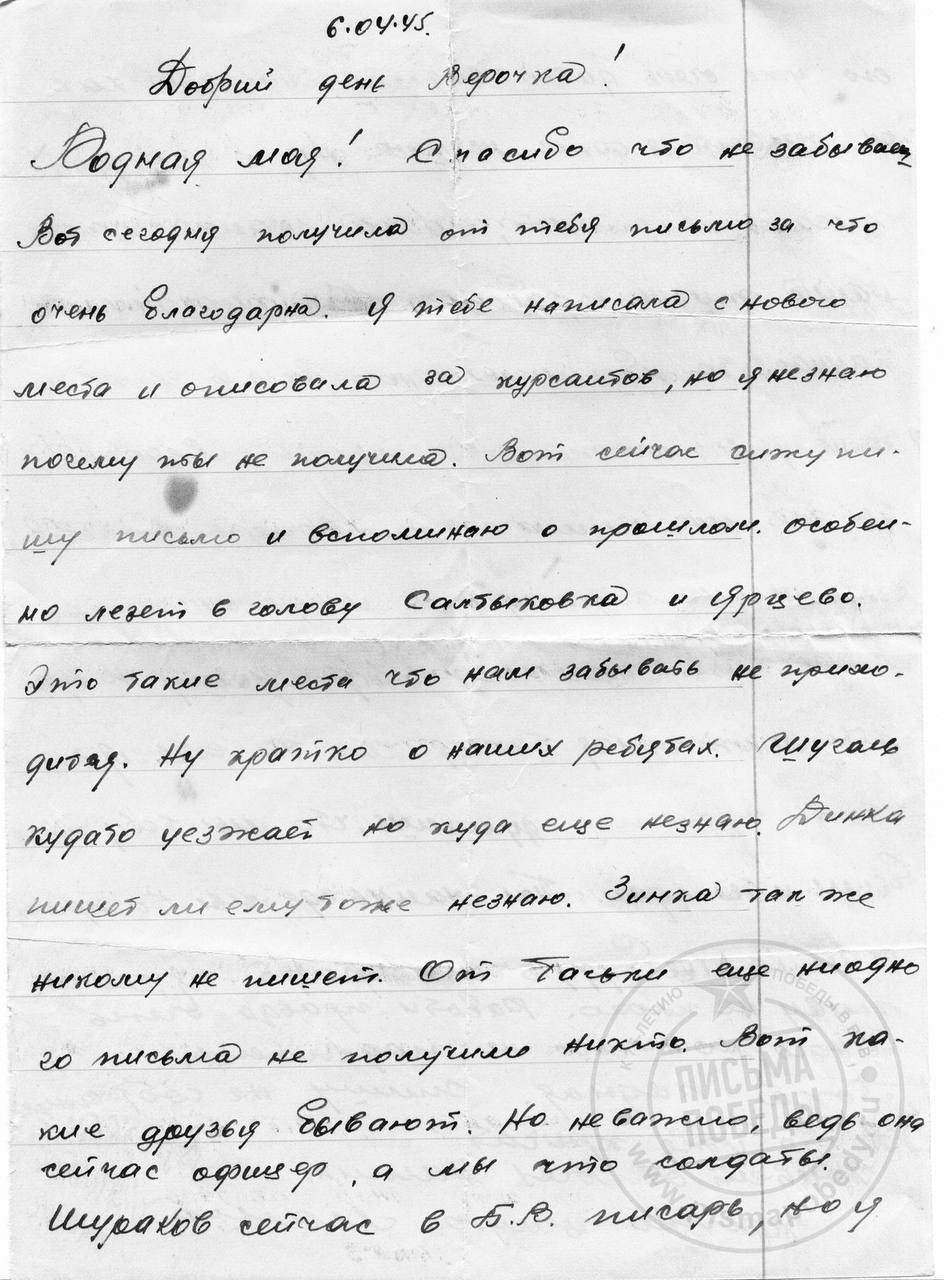 6.04.45.
Добрий день Верочка!
Родная моя! Спасибо что не забываеш
Вот сегодня получила от тебя письмо за что
очень благодарна. Я тебе написала с нового
места и описовала за курсантов, но я незнаю
почему ты не получила. Вот сейчас сижу пи-
шу письмо и вспоминаю о прошлом. Особен-
но лезет в голову Салтыковка и Ярцево.
Это такие места что нам забывать не прихо-
дится. Ну кратко о наших ребятах. Шугаль
кудато уезжает но куда еще незнаю. Динка
пишет ли ему тоже незнаю. Зинка так же
никому не пишет. От Таськи еще ниодно
го письма не получили никто. Вот ка-
кие друзья бывают. Но неважно, ведь она
сейчас офицер, а мы что солдаты.
Шураков сейчас в Б.В. писарь, но я
К ЛЕТИЮ ПОБЕДЫ В ВОВ
ПИСЬМА
ПОБЕДЫ